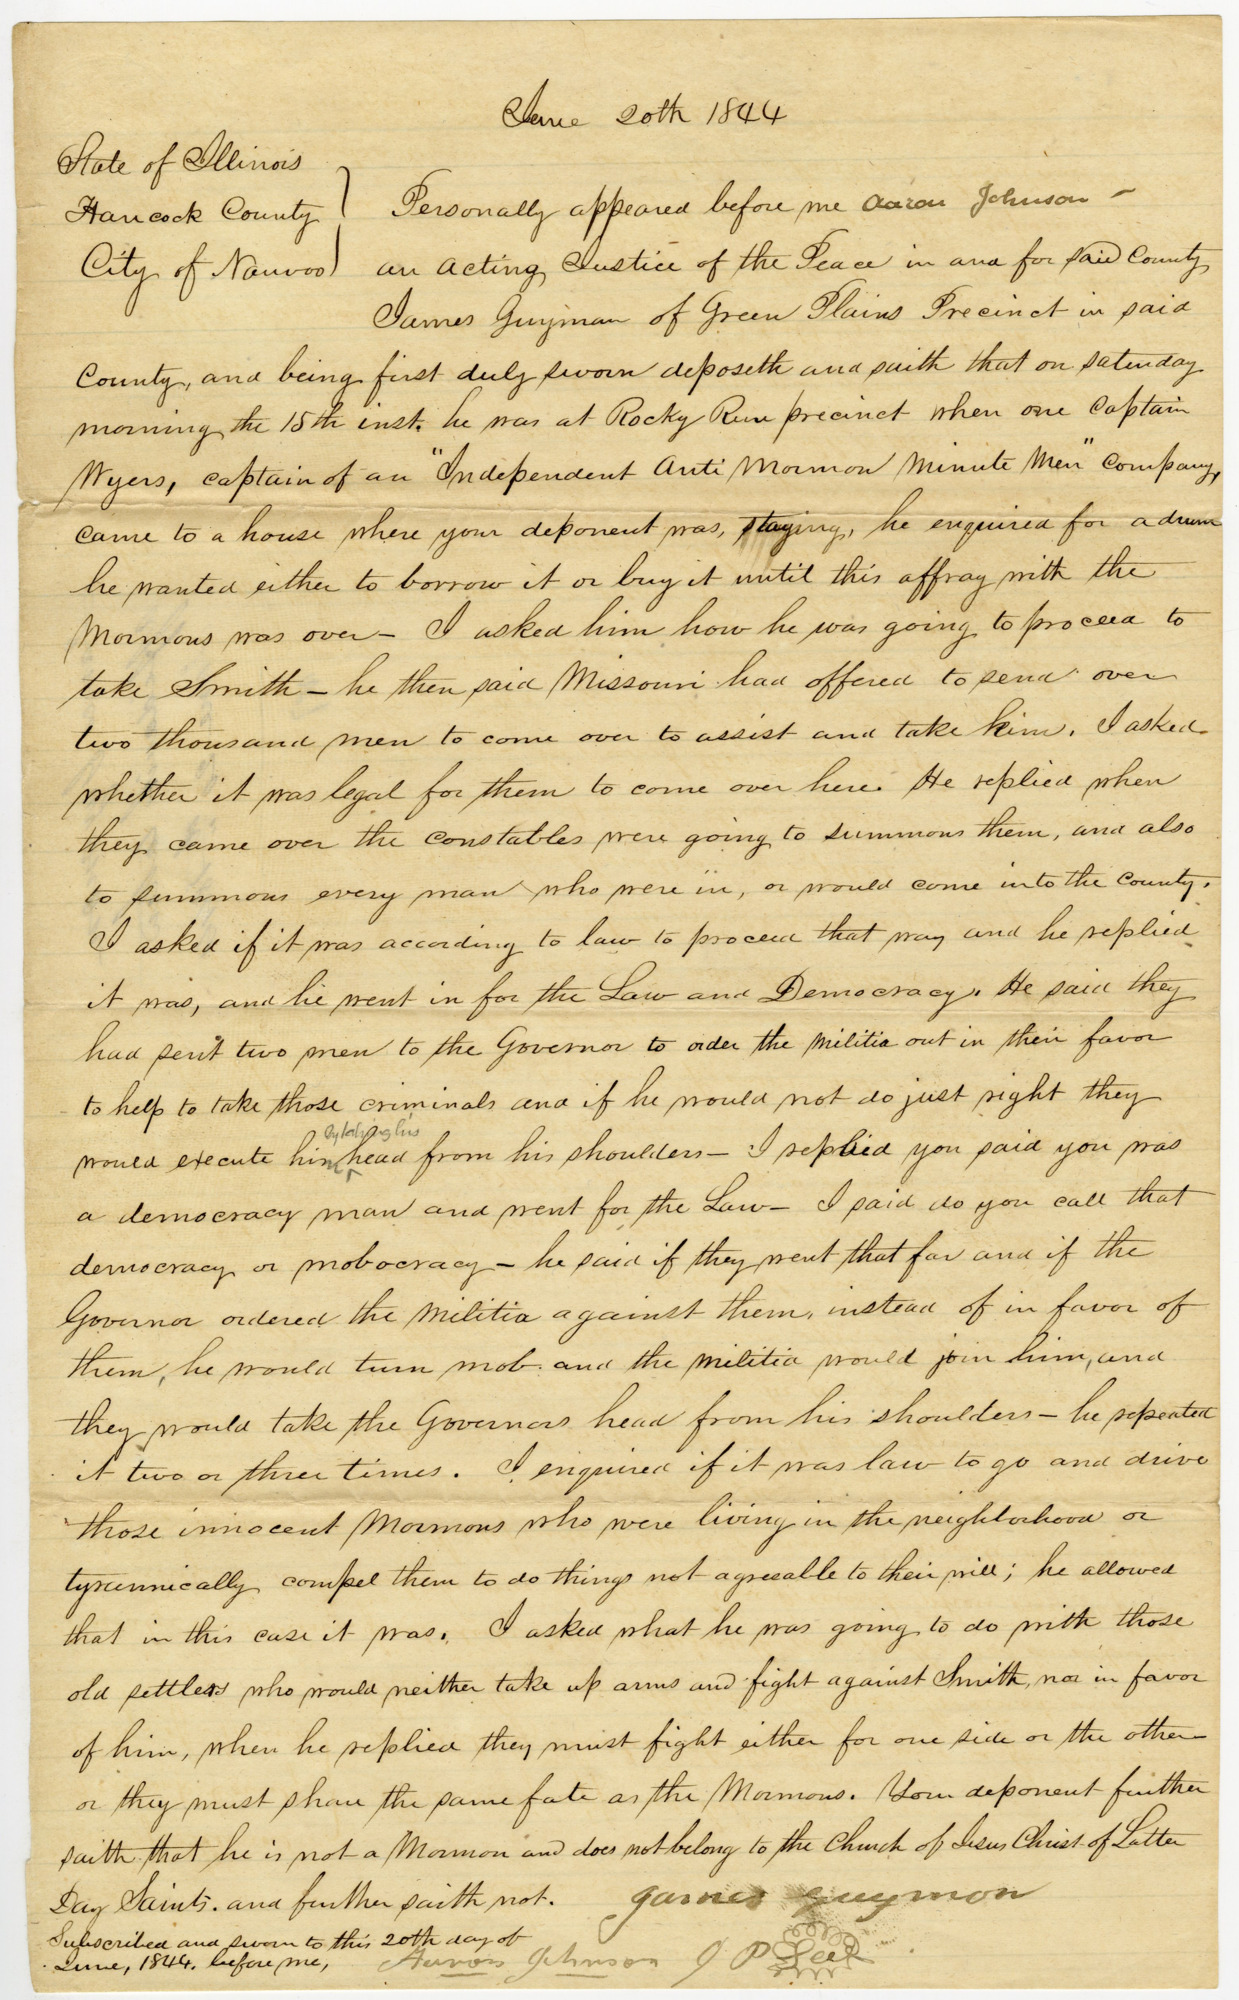 June 20th 1844
State of Illinois
Hancock County
City of Nauvoo
Personally appeared before me Aaron Johnson
an acting Justice of the Peace in and for said County
James Guyman of Green Plains Precinct in said
County, and being first duly sworn deposeth and saith that on saturday
morning the 15th inst. he was at Rocky Run precinct when one Captain
Wyers, captain of an "Independent Anti Mormon Minute Men" company,
came to a house where your deponent was, staying, he enquired for a drum
he wanted either to borrow it or buy it until this affray with the
Mormons was over— I asked him how he was going to proceed to
take Smith— he then said Missouri had offered to send over
two thousand men to come over to assist and take him. I asked
whether it was legal for them to come over here. He replied when
they came over the constables were going to summons them, and also
to summons every man who were in, or would come into the County.
I asked if it was according to law to proceed that way and he replied
it was, and he went in for the Law and Democracy. He said they
had sent two men to the Governor to order the militia out in their favor
to help to take those criminals and if he would not do just right they
by taking his
would execute him head from his shoulders— I replied you said you was
a democracy man and went for the Law— I said do you call that
democracy or mobocracy— he said if they went that far and if the
Governor ordered the Militia against them, instead of in favor of
them, he would turn mob. and the militia would join him, and
they would take the Governors head from his shoulders— he repeated
it two or three times. I enquired if it was law to go and drive
those innocent Mormons who were living in the neighborhood or
tyrannically compel them to do things not agreeable to their will; he allowed
that in this case it was. I asked what he was going to do with those
old settlers who would neither take up arms and fight against Smith, nor in favor
of him, when he replied they must fight either for one side or the other—
or they must share the same fate as the Mormons. Your deponent further
saith that he is not a Mormon and does not belong to the Church of Jesus Christ of Latter
Day Saints. and further saith not. James Guymon
Subscribed and sworn to this 20th day of
June, 1844. before me, Aaron Johnson J P Seal